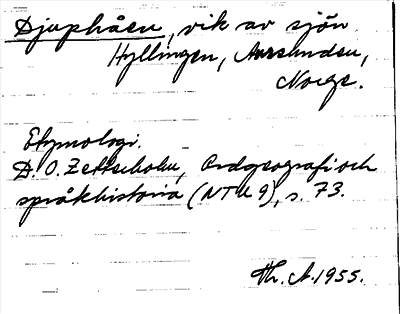 Djuphåen, vik av sjön
Hyllingen, Aursunden,
Norge.
Etymologi.
D. O. Zetterholm, Ordgeografi och
språkhistoria (NTU 9), s. 73.
Th. A. 1955.